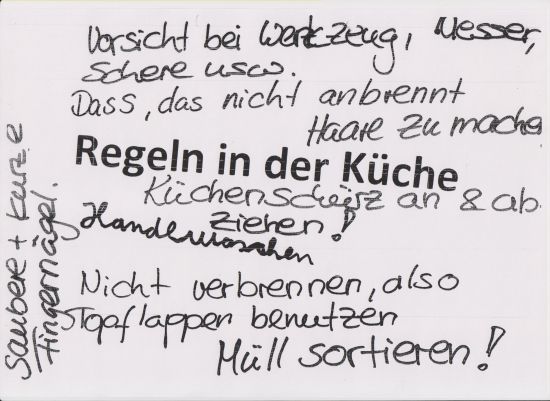 Vorsicht bei Werkzeug, Messer,
Schere usw.
Dass, das nicht anbrennt
Haare zu machen
Regeln in der Küche
Küchenschürz an & ab
ziehen!
Handewaschen
Nicht verbrennen, also
Topflappen benutzen
Müll sortieren!
Saubere + kurze
Fingernägel.